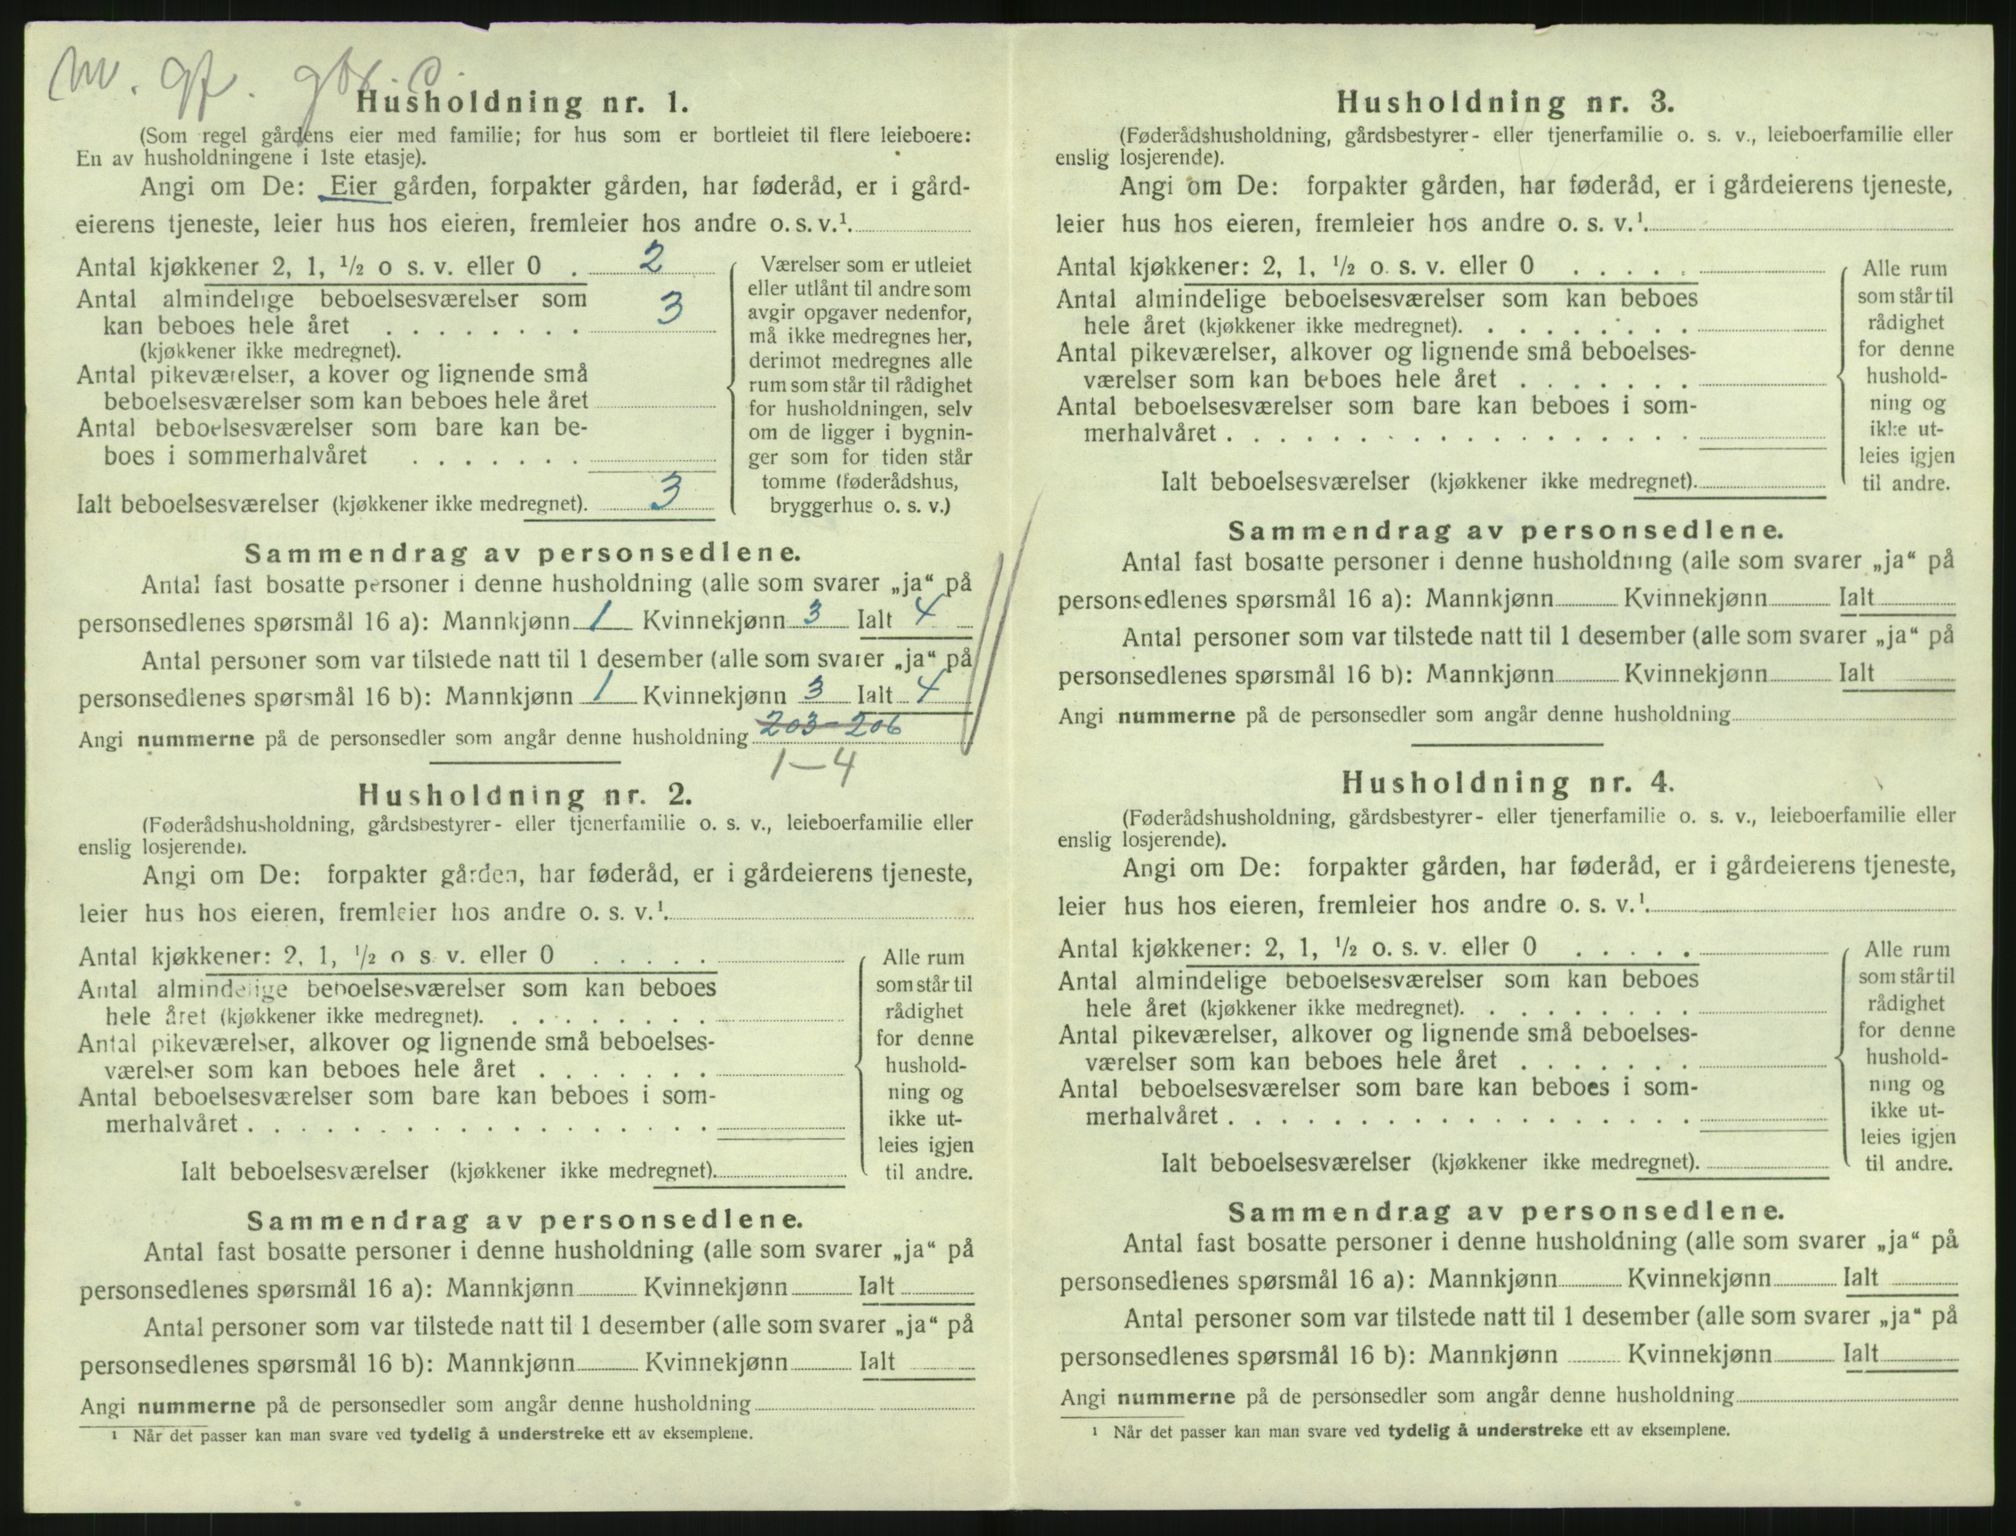 Husholdning nr. 1.
(Som regel gårdens eier med familie; for hus som er bortleiet til flere leieboere:
En av husholdningene i 1ste etasje).
Angi om De: Eier gården, forpakter gården, har føderåd, er i gård-
eierens tjeneste, leier hus hos eieren, fremleier hos andre o. s. v.¹.
Antal kjøkkener 2, 1, ½ o s. v. eller 0 . 2
Antal almindelige beboelsesværelser som
kan beboes hele året . . . . . . . . 3
(kjøkkener ikke medregnet).
Antal pikeværelser, a kover og lignende små
beboelsesværelser som kan beboes hele året
Antal beboelsesværelser som bare kan be-
boes i sommerhalvåret . . . . . . .
Ialt beboelsesværelser (kjøkkener ikke medregnet). 3
Værelser som er utleiet
eller utlånt til andre som
avgir opgaver nedenfor,
må ikke medregnes her,
derimot medregnes alle
rum som står til rådighet
for husholdningen, selv
om de ligger i bygnin-
ger som for tiden står
tomme (føderådshus,
bryggerhus o. s. v.)
Sammendrag av personsedlene.
Antal fast bosatte personer i denne husholdning (alle som svarer „ja“ på
personsedlenes spørsmål 16 a): Mannkjønn 1 Kvinnekjønn 3 Ialt 4
Antal personer som var tilstede natt til 1 desember (alle som svarer „ja“ på
personsedlenes spørsmål 16 b): Mannkjønn 1 Kvinnekjønn 3 Ialt 4
Angi nummerne på de personsedler som angår denne husholdning 203-206
1-4
Husholdning nr. 2.
(Føderådshusholdning, gårdsbestyrer- eller tjenerfamilie o. s. v., leieboerfamilie eller
enslig losjerende).
Angi om De: forpakter gården, har føderåd, er i gårdeierens tjeneste,
leier hus hos eieren, fremleier hos andre o. s. v.¹.
Antal kjøkkener: 2, 1, ½ o s. v. eller 0 . . . . .
Antal almindelige beboelsesværelser som kan beboes
hele året (kjøkkener ikke medregnet). . . . . . . . .
Antal pikeværelser, alkover og lignende små beboelses-
værelser som kan beboes hele året . . . . . . .
Antal beboelsesværelser som bare kan beboes i som-
merhalvåret . . . . . . . . . . . . . . . . . .
Ialt beboelsesværelser (kjøkkener ikke medregnet).
Alle rum
som står til
rådighet
for denne
hushold-
ning og
ikke ut-
leies igjen
til andre.
Sammendrag av personsedlene.
Antal fast bosatte personer i denne husholdning (alle som svarer „ja“ på
personsedlenes spørsmål 16 a): Mannkjønn Kvinnekjønn Ialt
Antal personer som var tilstede natt til 1 desember (alle som svarer „ja“ på
personsedlenes spørsmål 16 b): Mannkjønn Kvinnekjønn Ialt
Angi nummerne på de personsedler som angår denne husholdning
¹ Når det passer kan man svare ved tydelig å understreke ett av eksemplene.
Husholdning nr. 3.
(Føderådshusholdning, gårdsbestyrer- eller tjenerfamilie o. s. v., leieboerfamilie eller
enslig losjerende).
Angi om De: forpakter gården, har føderåd, er i gårdeierens tjeneste,
leier hus hos eieren, fremleier hos andre o. s. v.¹.
Antal kjøkkener: 2, 1, ½ o. s. v. eller 0 . . . . .
Antal almindelige beboelsesværelser som kan beboes
hele året (kjøkkener ikke medregnet). . . . . . . . .
Antal pikeværelser, alkover og lignende små beboelses-
værelser som kan beboes hele året . . . . . . .
Antal beboelsesværelser som bare kan beboes i som-
merhalvåret . . . . . . . . . . . . . . . . . .
Ialt beboelsesværelser (kjøkkener ikke medregnet).
Alle rum
som står til
rådighet
for denne
hushold-
ning og
ikke ut-
leies igjen
til andre.
Sammendrag av personsedlene.
Antal fast bosatte personer i denne husholdning (alle som svarer „ja“ på
personsedlenes spørsmål 16 a): Mannkjønn Kvinnekjønn Ialt
Antal personer som var tilstede natt til 1 desember (alle som svarer „ja“ på
personsedlenes spørsmål 16 b): Mannkjønn Kvinnekjønn Ialt
Angi nummerne på de personsedler som angår denne husholdning
Husholdning nr. 4.
(Føderådshusholdning, gårdsbestyrer- eller tjenerfamilie o. s. v., leieboerfamilie eller
enslig losjerende).
Angi om De: forpakter gården, har føderåd, er i gårdeierens tjeneste,
leier hus hos eieren, fremleier hos andre o. s. v.¹.
Antal kjøkkener: 2, 1, ½ o. s. v. eller 0 . . . . .
Antal almindelige beboelsesværelser som kan beboes
hele året (kjøkkener ikke medregnet). . . . . . . . .
Antal pikeværelser, alkover og lignende små beboelses-
værelser som kan beboes hele året . . . . . . .
Antal beboelsesværelser som bare kan beboes i som-
merhalvåret . . . . . . . . . . . . . . . . . .
Ialt beboelsesværelser (kjøkkener ikke medregnet).
Alle rum
som står til
rådighet
for denne
hushold-
ning og
ikke ut-
leies igjen
til andre.
Sammendrag av personsedlene.
Antal fast bosatte personer i denne husholdning (alle som svarer „ja“ på
personsedlenes spørsmål 16 a): Mannkjønn Kvinnekjønn Ialt
Antal personer som var tilstede natt til 1 desember (alle som svarer „ja“ på
personsedlenes spørsmål 16 b): Mannkjønn Kvinnekjønn Ialt
Angi nummerne på de personsedler som angår denne husholdning
¹ Når det passer kan man svare ved tydelig å understreke ett av eksemplene.